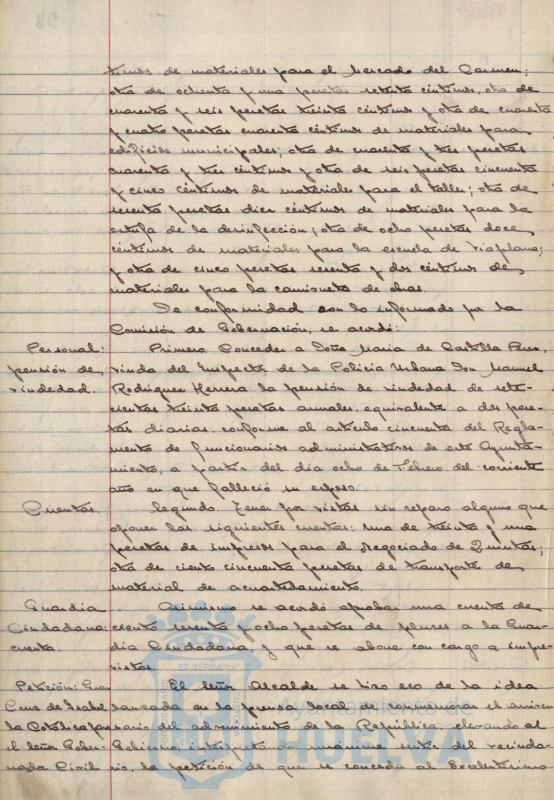 timos de materiales para el Mercado del Carmen;
otra de ochenta y una pesetas setenta céntimos, otra de
cuarenta y seis pesetas treinta céntimos y otra de cuarenta
y cuatro pesetas cuarenta céntimos de materiales para
edificios municipales; otra de cuarenta y tres pesetas
cuarenta y tres céntimos y otra de seis pesetas cincuenta
y cinco céntimos de materiales para el taller; otra de
sesenta pesetas diez céntimos de materiales para la
estufa de la desinfección; otra de ocho pesetas doce
céntimos de materiales para la escuela de Viaplana;
y otra de cinco pesetas sesenta y dos céntimos de
materiales para la camioneta de obras.
De conformidad con lo informado por la
Comisión de Gobernación, se acordó:
Personal: Primero Conceder a Doña Maria de Castilla
pensión de viuda del Inspector de la Policia Urbana Don Manuel
viudedad. Rodriguez Herrera la pensión de viudedad de sete-
cientas treinta pesetas anuales, equivalente a dos pese-
tas diarias, conforme al articulo cincuenta del Regla-
mento de funcionarios administrativos de este Ayunta-
miento, a partir del dia ocho de Febrero del corriente
año en que falleció su esposo.
Cuentas. Segundo. Tener por vistas sin reparo alguno que
oponer las siguientes cuentas: una de treinta y una
pesetas de impresos para el Negociado de Quintas;
otra de ciento cincuenta pesetas de transporte de
material de acuartelamiento.
Guardia Asimismo se acordó aprobar una cuenta de
Ciudadana: ciento y ocho pesetas de pluses a la Guar-
cuenta. dia Ciudadana, y que se abone con cargo a impre-
vistos.
Petición: Gran El Señor Alcalde se hizo eco de la idea
Cruz de Isabel lanzada en la prensa local de conmemorar el aniver-
la Católica para sario del advenimiento de la República, elevando al
el Señor Gober- Gobierno, interpretando unánime sentir del vecinda-
nador Civil rio, la petición de que se conceda al Excelentisimo
Ayuntamiento de
HUELVA